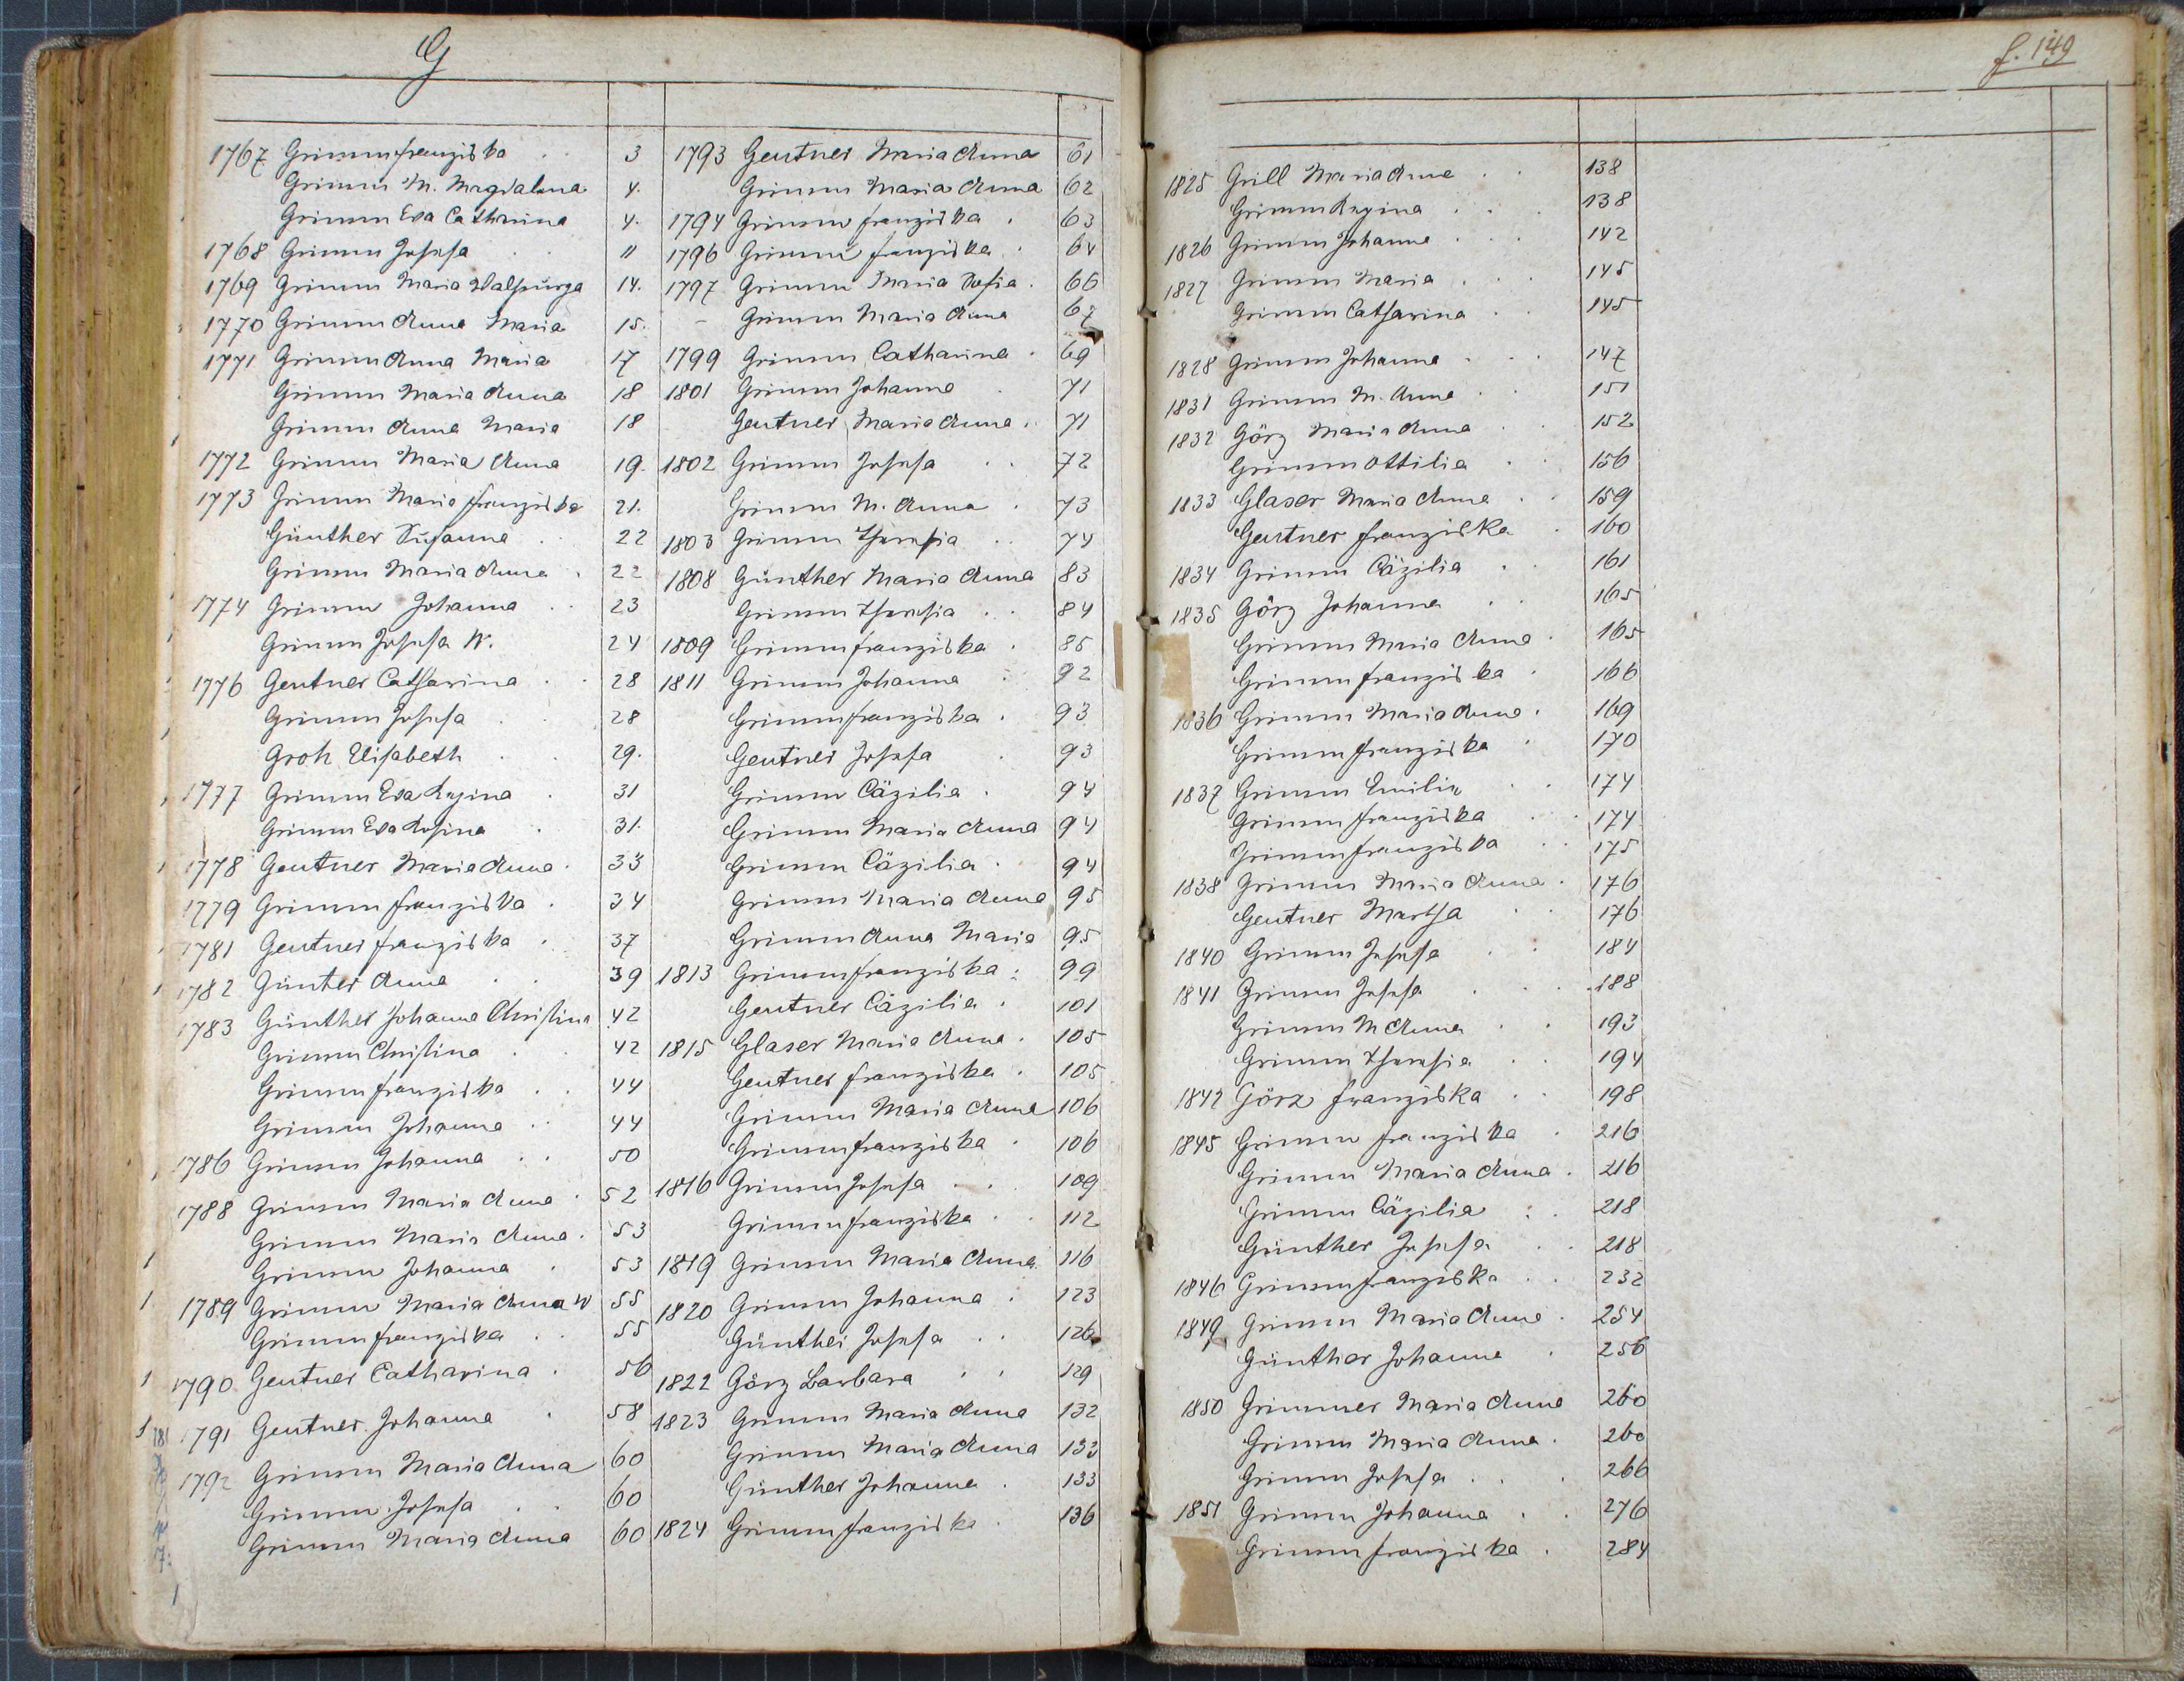 G
1767 Grimm Franziska . . 3
Grimm M. Magdalena 4.
Grimm Eva Catharina 4.
1768 Grimm Josefa . . 11
1769 Grimm Maria Walpurga 14.
1770 Grimm Anna Maria 15.
1771 Grimm Anna Maria 17
Grimm Maria Anna 18
Grimm Anna Maria 18
1772 Grimm Maria Anna 19.
1773 Grimm Maria Franziska 21.
Günther Susanna . . 22
Grimm Maria Anna . 22
1774 Grimm Johanna . . 23
Grimm Josefa W. 24
1776 Gentner Catharina . . 28
Grimm Josefa . . 28
Groh Elisabeth . . 29.
1777 Grimm Eva Regina . 31
Grimm Eva Rosina . 31.
1778 Gentner Maria Anna . 33
1779 Grimm Franziska . 34
1781 Gentner Franziska . 37
1782 Günter Anna . . 39
1783 Günther Johanna Christina 42
Grimm Christina . . 42
Grimm Franziska . . 44
Grimm Johanna . . 44
1786 Grimm Johanna . . 50
1788 Grimm Maria Anna . 52
Grimm Maria Anna . 53
Grimm Johanna . 53
1789 Grimm Maria Anna W 55
Grimm Franziska . . 55
1790 Gentner Catharina . 56
1791 Gentner Johanna . 58
1792 Grimm Maria Anna 60
Grimm Josefa . . 60
Grimm Maria Anna 60
1793 Gentner Maria Anna 61
Grimm Maria Anna 62
1794 Grimm Franziska . 63
1796 Grimm Franziska . 64
1797 Grimm Maria Sofia . 66
– Grimm Maria Anna 67
1799 Grimm Catharina . 69
1801 Grimm Johanna . 71
Gentner Maria Anna . 71
1802 Grimm Josefa . . 72
Grimm M. Anna . 73
1803 Grimm Theresia . . 74
1808 Günther Maria Anna 83
Grimm Theresia . . 84
1809 Grimm Franziska . 85
1811 Grimm Johanna . 92
Grimm Franziska . 93
Gentner Josefa . 93
Grimm Cäzilia . 94
Grimm Maria Anna 94
Grimm Cäzilia . 94
Grimm Maria Anna 95
Grimm Anna Maria 95
1813 Grimm Franziska . 99
Gentner Cäzilia . 101
1815 Glaser Maria Anna . 105
Gentner Franziska . 105
Grimm Maria Anna 106
Grimm Franziska . 106
1816 Grimm Josefa . . 109
Grimm Franziska . . 112
1819 Grimm Maria Anna 116
1820 Grimm Johanna . 123
Günther Josefa . . 126
1822 Görz Barbara . . 129
1823 Grimm Maria Anna 132
Grimm Maria Anna 133
Günther Johanna . 133
1824 Grimm Franziska . 136
f. 149
1825 Grill Maria Anna . . 138
Grimm Regina . . . 138
1826 Grimm Johanna . . . 142
1827 Grimm Maria . . . 145
Grimm Catharina . . 145
1828 Grimm Johanna . . . 147
1831 Grimm M. Anna . . 151
1832 Görz Maria Anna . . 152
Grimm Ottilia . . 156
1833 Glaser Maria Anna . . 159
Gentner Franziska . 160
1834 Grimm Cäzilia . . 161
1835 Görz Johanna . . 165
Grimm Maria Anna . 165
Grimm Franziska . 166
1836 Grimm Maria Anna . 169
Grimm Franziska . 170
1837 Grimm Emilia . . 174
Grimm Franziska . . 174
Grimm Franziska . . 175
1838 Grimm Maria Anna . 176
Gentner Martha . . 176
1840 Grimm Josefa . . 184
1841 Grimm Josefa . . . 188
Grimm M Anna . . 193
Grimm Theresia . . 194
1842 Görz Franziska . . 198
1845 Grimm Franziska . 216
Grimm Maria Anna . 216
Grimm Cäzilia . . 218
Günther Josefa . . 218
1846 Grimm Franziska . . 232
1849 Grimm Maria Anna . 254
Günther Johanna . 256
1850 Grimmer Maria Anna 260
Grimm Maria Anna . 260
Grimm Josefa . . . 266
1851 Grimm Johanna . . 276
Grimm Franziska . 284